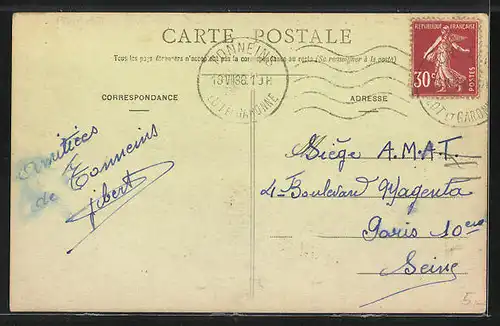 CARTE POSTALE
Tous les pays étrangers n'acceptent pas la correspondance au recto (Se renseigner à la poste)
CORRESPONDANCE
ADRESSE
RÉPUBLIQUE FRANÇAISE
30c
POSTES
TONNEINS
LOT ET GARONNE
LOT ET GARONNE
Amitiées
de Tonneins
Gibert
Siège A.M.A.T.
4 Boulevard Magenta
Paris 10ème
Seine
5.-